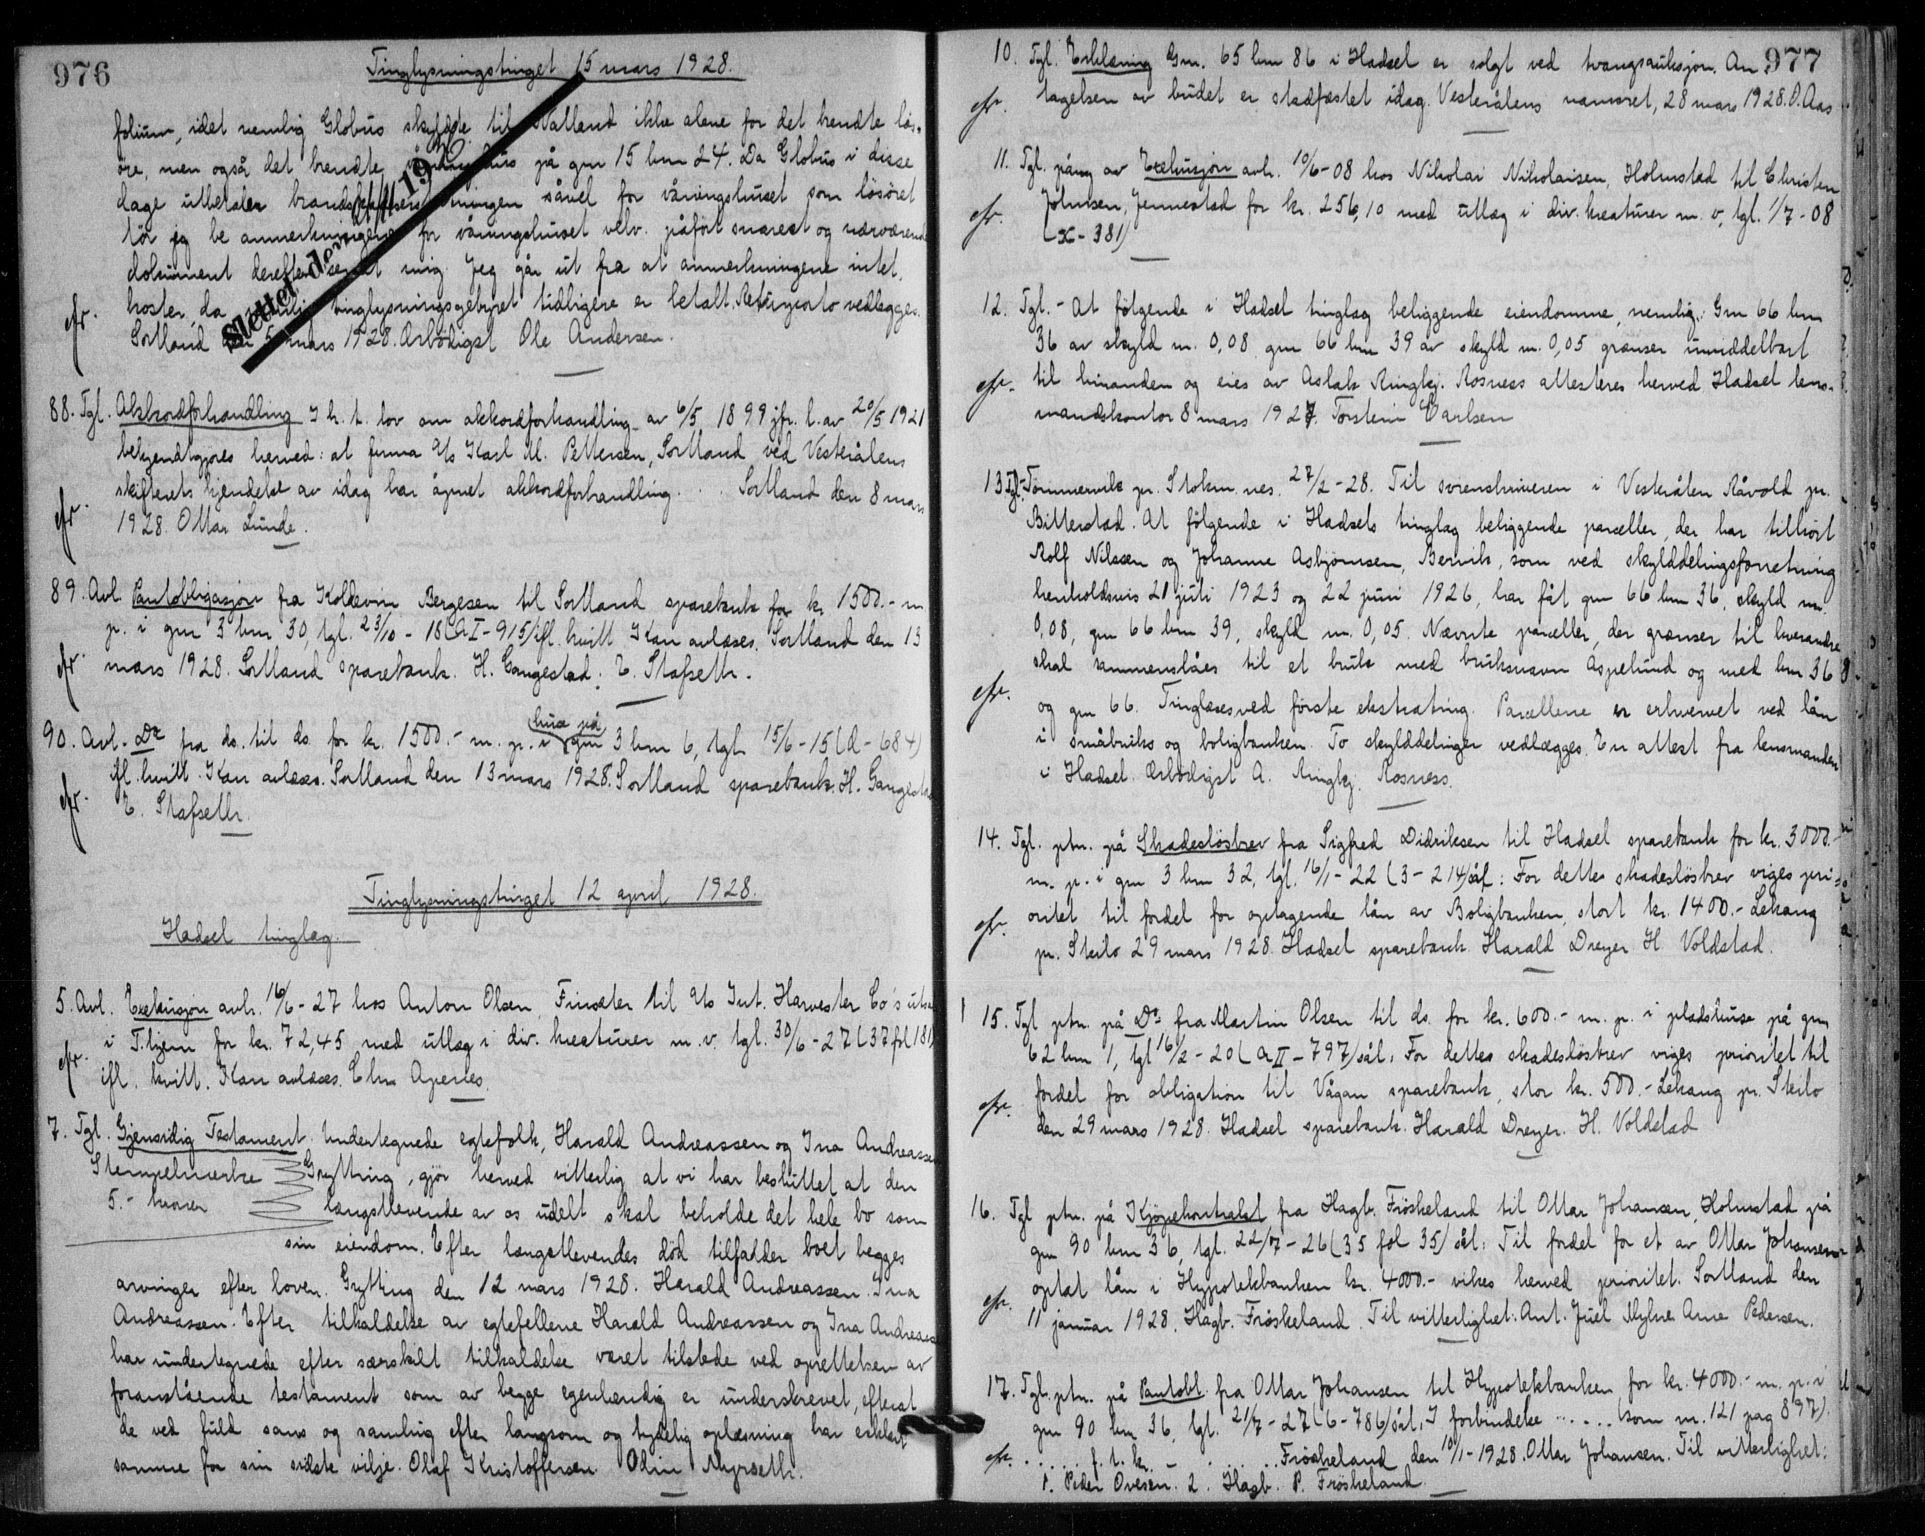 976
Tinglysningstinget 15 mars 1928.
folium, idet nemlig Globus skyldte til Walland ikke alene for det brendte løs-
øre, men også det brendte våningshus på gnr 15 brn 24. Da Globus i disse
dage utbetaler brandskadeserstatningen såvel for våningshuset som løsøret
tör jeg be anmerkningene for våningshuset velv. påfört snarest og nærværende
dokument derefter sendt mig. Jeg går ut fra at anmerkningene intet
koster, da tinglysningsgebyret tidligere er betalt. Returporto vedlegges.
Sortland den 5 mars 1928. Ærbödigst Ole Andersen.
Slettet den 19
cfr.
88. Tgl. Akkordforhandling I h. t. lov om akkordforhandling av 6/5 1899 jfr. l. av 20/5 1921
bekjendtgjøres herved: at firma A/s Karl M. Pettersen, Sortland ved Vesterålens
skifterets kjendelse av idag har åpnet akkordforhandling. . . Sortland den 8 mars
1928. Ottar Lunde.
cfr.
89. Avl Pantobligasjon fra Koldevin Bergesen til Sortland sparebank for kr. 1500.- m.
p. i gnr 3 brn 30, tgl. 23/10 - 18 (A I - 915) ifl. kvitt Kan avlæses. Sortland den 13
mars 1928. Sortland sparebank. H. Gangestad. E. Stafseth.
cfr
90. Avl. Do fra ds. til ds for kr. 1500.- m. p. i huse på gnr 3 brn 6, tgl. 15/6 - 15 (A - 684)
ifl. kvitt. Kan avlæses. Sortland den 13 mars 1928. Sortland sparebank. H. Gangestad
E. Stafseth.
cfr.
Tinglysningstinget 12 april 1928.
Hadsel tinglag.
5. Avl. Exekusjon avh. 16/6 - 27 hos Anton Olsen, Finsæter til A/s Int. Harvester Co's utsa
i T.hjem for kr. 72,45 med utlæg i div. kreaturer m. v. tgl. 30/6 - 27 (37 fol 181)
ifl. kvitt. Kan avlæses. Chr Apenes.
cfr.
7. Tgl. Gjensidig Testament. Undertegnede egtefolk, Harald Andreassen og Ina Andreassen
Stempelmerke Grytting, gjör herved vitterlig at vi har besluttet at den
5.- kroner længstlevende av os udelt skal beholde det hele bo som
sin eiendom. Efter længstlevendes död tilfalder boet begges
arvinger efter loven. Grytting den 12 mars 1928. Harald Andreassen. Ina
Andreassen. Efter tilkaldelse av egtefellene Harald Andreassen og Ina Andreassen
har undertegnede efter særskilt tilkaldelse været tilstede ved oprettelsen av
foranstående testament som av begge egenhendig er underskrevet, efterat
de ved fuld sans og samling efter langsom og tydelig oplæsning har erklært
samme for sin sidste vilje. Olaf Kristoffersen Odin Myrseth.
977
10. Tgl. Erklæring Gnr. 65 brn 86 i Hadsel er solgt ved tvangsauksjon. An-
tagelsen av budet er stadfæstet idag. Vesterålens namsret, 28 mars 1928. O. Aas
cfr.
11. Tgl. påny av Exekusjon avh. 10/6 - 08 hos Nikolai Nikolaisen, Holmstad til Christen
Johnsen, Jennestad for kr. 256,10 med utlæg i div. kreaturer m. v, tgl. 1/7 - 08
(X - 381)
cfr.
12. Tgl. - At følgende i Hadsel tinglag beliggende eiendomme, nemlig: Gnr 66 brn
36 av skyld m. 0,08 gnr 66 brn 39 av skyld m. 0,05 grænser umiddelbart
til hinanden og eies av Aslak Ringkj. Rosness attesteres herved. Hadsel lens-
mandskontor 8 mars 1927. Torstein Carlsen
cfr.
13 Tgl. Tömmervik pr. Stokm.nes. 27/2 - 28. Til sorenskriveren i Vesterålen Råvold pr.
Bitterstad. At følgende i Hadsels tinglag beliggende parceller, der har tilhört
Rolf Nilssen og Johanne Asbjörnsen, Bervik, som ved skylddelingsforretning
henholdsvis 21 juli 1923 og 22 juni 1926, har fåt gnr 66 brn 36, skyld m.
0,08, gnr 66 brn 39, skyld m. 0,05. Nævnte parceller, der grænser til hverandre
skal sammenslåes til et bruk med bruksnavn Aspelund og med brn 36
og gnr 66. Tinglæses ved förste ekstrating. Parcellene er erhvervet ved lån
i småbruks og boligbanken. To skylddelinger vedlægges. En attest fra lensmanden
i Hadsel. Ærbödigst A. Ringkj. Rosness.
cfr.
14. Tgl. ptn. på Skadeslösbrev fra Sigfred Didriksen til Hadsel sparebank for kr. 3000.-
m. p. i gnr 3 brn 32, tgl. 16/1 - 22 (3 - 214) sål: For dette skadeslösbrev viges pri-
oritet til fordel for optagende lån av Boligbanken, stort kr. 1400.- Lekang
pr. Steilo 29 mars 1928. Hadsel sparebank. Harald Dreyer H. Voldstad.
cfr.
15. Tgl ptn. på Do fra Martin Olsen til ds. for kr. 600.- m. p. i pladshuse på gnr
62 brn 1, tgl 16/2 - 20 (A II - 797) sål: For dette skadeslösbrev viges prioritet til
fordel for obligation til Vågan sparebank, stor kr. 500.- Lekang pr. Steilo
den 29 mars 1928. Hadsel sparebank. Harald Dreyer. H. Voldstad
cfr.
16. Tgl ptn. på Kjöpekontrakt fra Hagb. Fröskeland til Ottar Johansen, Holmstad på
gnr 90 brn 36, tgl. 22/7 - 26 (35 fol 35) sål: Til fordel for et av Ottar Johansen
optat lån i Hypotekbanken kr. 4000.- vikes herved prioritet. Sortland den
11 januar 1928. Hagb. Fröskeland. Til vitterlighet: Ant. Juel Myhre Arne Pedersen.
cfr.
17. Tgl. ptn. på Pantobl. fra Ottar Johansen til Hypotekbanken for kr. 4000.- m. p. i
gnr 90 brn 36, tgl. 21/7 - 27 (6 - 786) sål. I forbindelse . . . . . (som nr. 121 pag 897)
. . . . . f. t. k. - . . . . . Fröskeland den 10/1 - 1928. Ottar Johansen. Til vitterlighet:
1. Peder Ovesen. 2. Hagb. P. Fröskeland.
cfr.